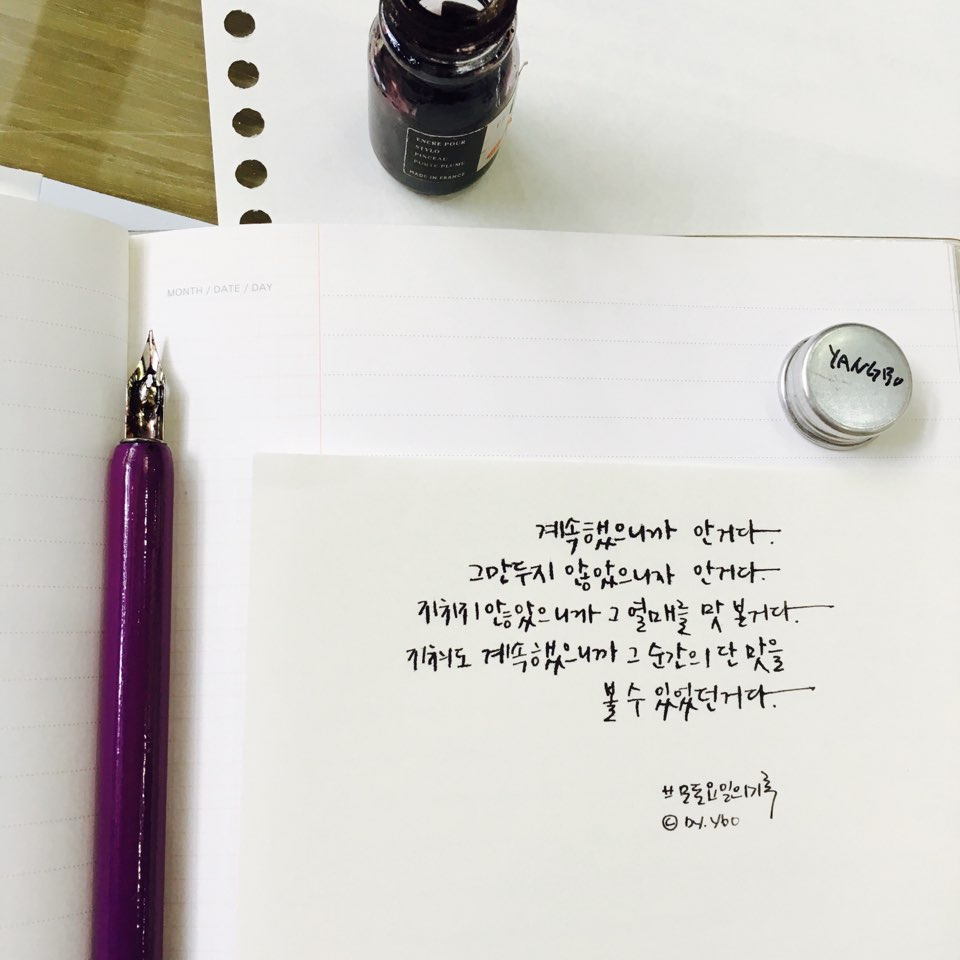 ENCRE POUR
STYLO
PINCEAU
PORTE PLUME
MADE IN FRANCE
MONTH / DATE / DAY
YANGBO
계속했으니까 안거다.
그만두지 않았으니까 안거다.
지치지 않았으니까 그 열매를 맛 볼거다.
지쳐도 계속했으니까 그 순간의 단 맛을
볼 수 있었던거다.
#모든요일의기록
© by.ybo